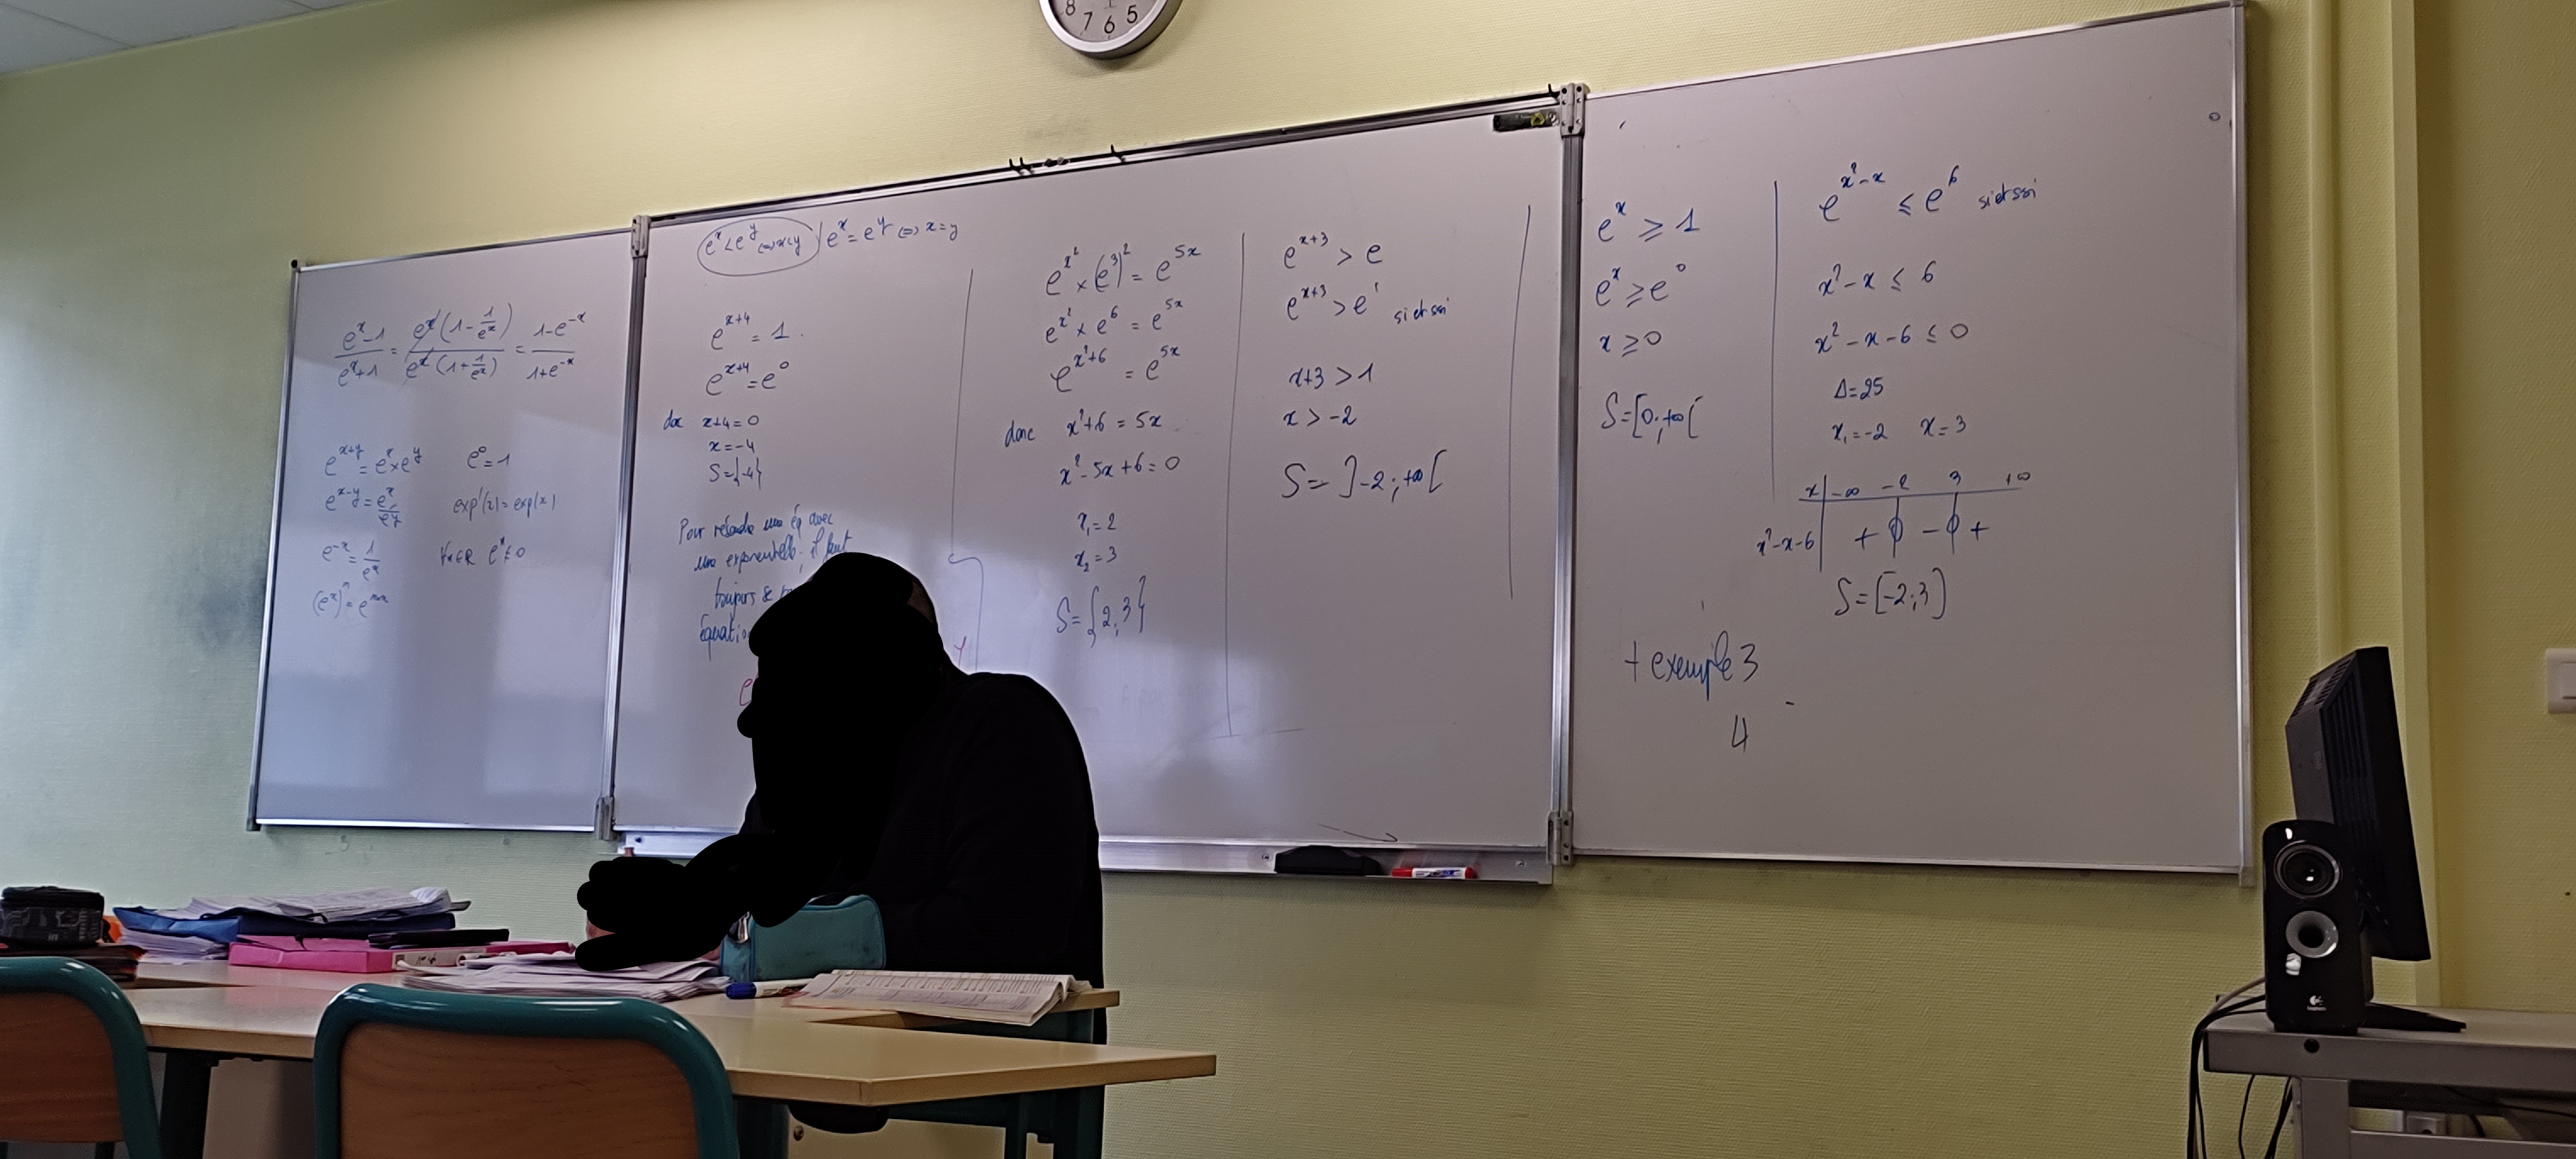 8 7 6 5
e^x-1/e^x+1 = e^x(1-1/e^x)/e^x(1+1/e^x) = 1-e^-x/1+e^-x
e^x+y = e^x × e^y e^0 = 1
e^x-y = e^x/e^y exp'(x) = exp(x)
e^-x = 1/e^x ∀x∈R e^x ≠ 0
(e^x)^n = e^nx
e^x < e^y ⇔ x<y / e^x = e^y ⇔ x = y
e^x+4 = 1.
e^x+4 = e^0
donc x+4 = 0
x = -4
S = {-4}
Pour résoudre une éq avec
une exponentielle, il faut
toujours se
Équation
e
y
e^x² × (e^3)^2 = e^5x
e^x² × e^6 = e^5x
e^x²+6 = e^5x
donc x²+6 = 5x
x²-5x+6 = 0
x₁ = 2
x₂ = 3
S = {2;3}
e^x+3 > e
e^x+3 > e^1 si et ssi
x+3 > 1
x > -2
S = ]-2;+∞[
e^x ≥ 1
e^x ≥ e^0
x ≥ 0
S = [0;+∞[
e^x²-x ≤ e^6 si et ssi
x²-x ≤ 6
x²-x-6 ≤ 0
Δ=25
x₁ = -2 x = 3
x -∞ -2 3 +∞
x²-x-6 + 0 - 0 +
S = [-2;3]
+ exemple 3
4